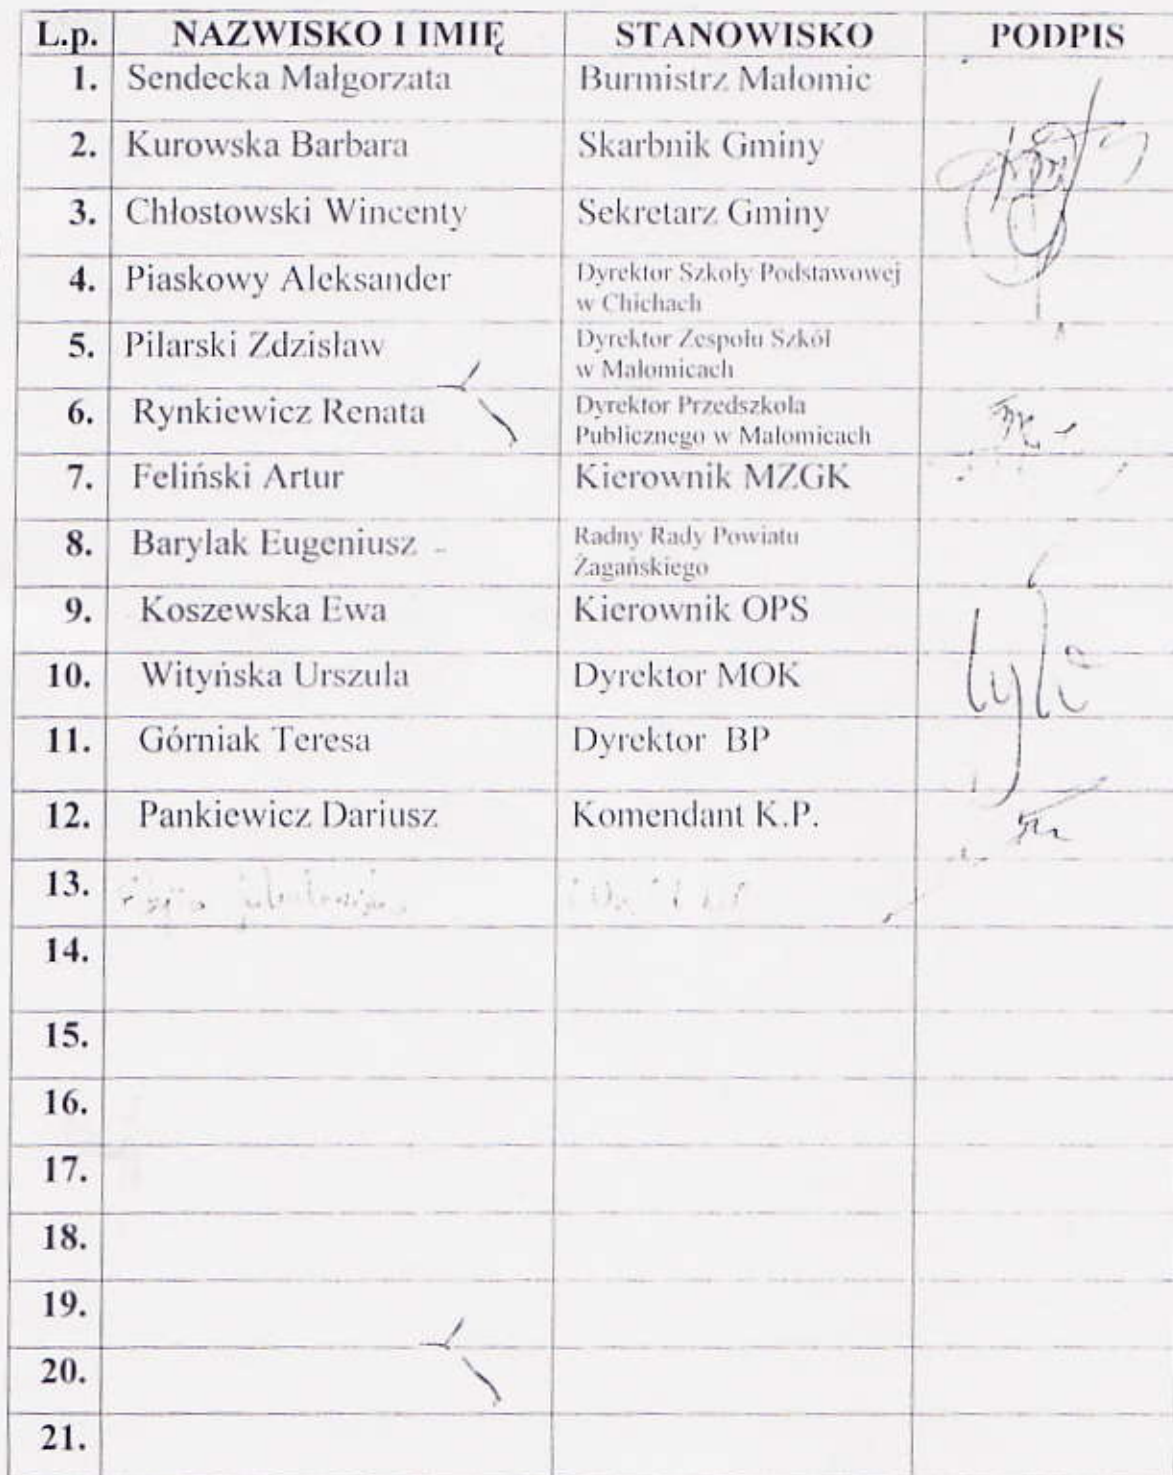 L.p. NAZWISKO I IMIĘ STANOWISKO PODPIS
1. Sendecka Małgorzata Burmistrz Małomic
2. Kurowska Barbara Skarbnik Gminy
3. Chłostowski Wincenty Sekretarz Gminy
4. Piaskowy Aleksander Dyrektor Szkoły Podstawowej
w Chichach
5. Pilarski Zdzisław Dyrektor Zespołu Szkół
w Małomicach
6. Rynkiewicz Renata Dyrektor Przedszkola
Publicznego w Małomicach
7. Feliński Artur Kierownik MZGK
8. Barylak Eugeniusz - Radny Rady Powiatu
Żagańskiego
9. Koszewska Ewa Kierownik OPS
10. Wityńska Urszula Dyrektor MOK
11. Górniak Teresa Dyrektor BP
12. Pankiewicz Dariusz Komendant K.P.
13.
14.
15.
16.
17.
18.
19.
20.
21.